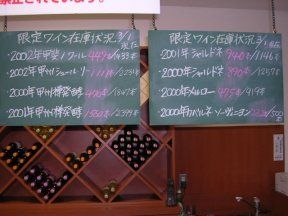 禁止されています。
限定ワイン在庫状況 3/1 現在
・2002年甲斐ノワール 449/1433本
・2002年甲州シュール・リー 111/2234本
・2000年甲州樽発酵 406/1847本
・2001年甲州樽発酵 1580/2399本
限定ワイン在庫状況 3/1 現在
・2001年シャルドネ 940/1146本
・2000年シャルドネ 390/1257本
・2000年メルロー 495/919本
・2000年カベルネ・ソーヴィニヨン /500